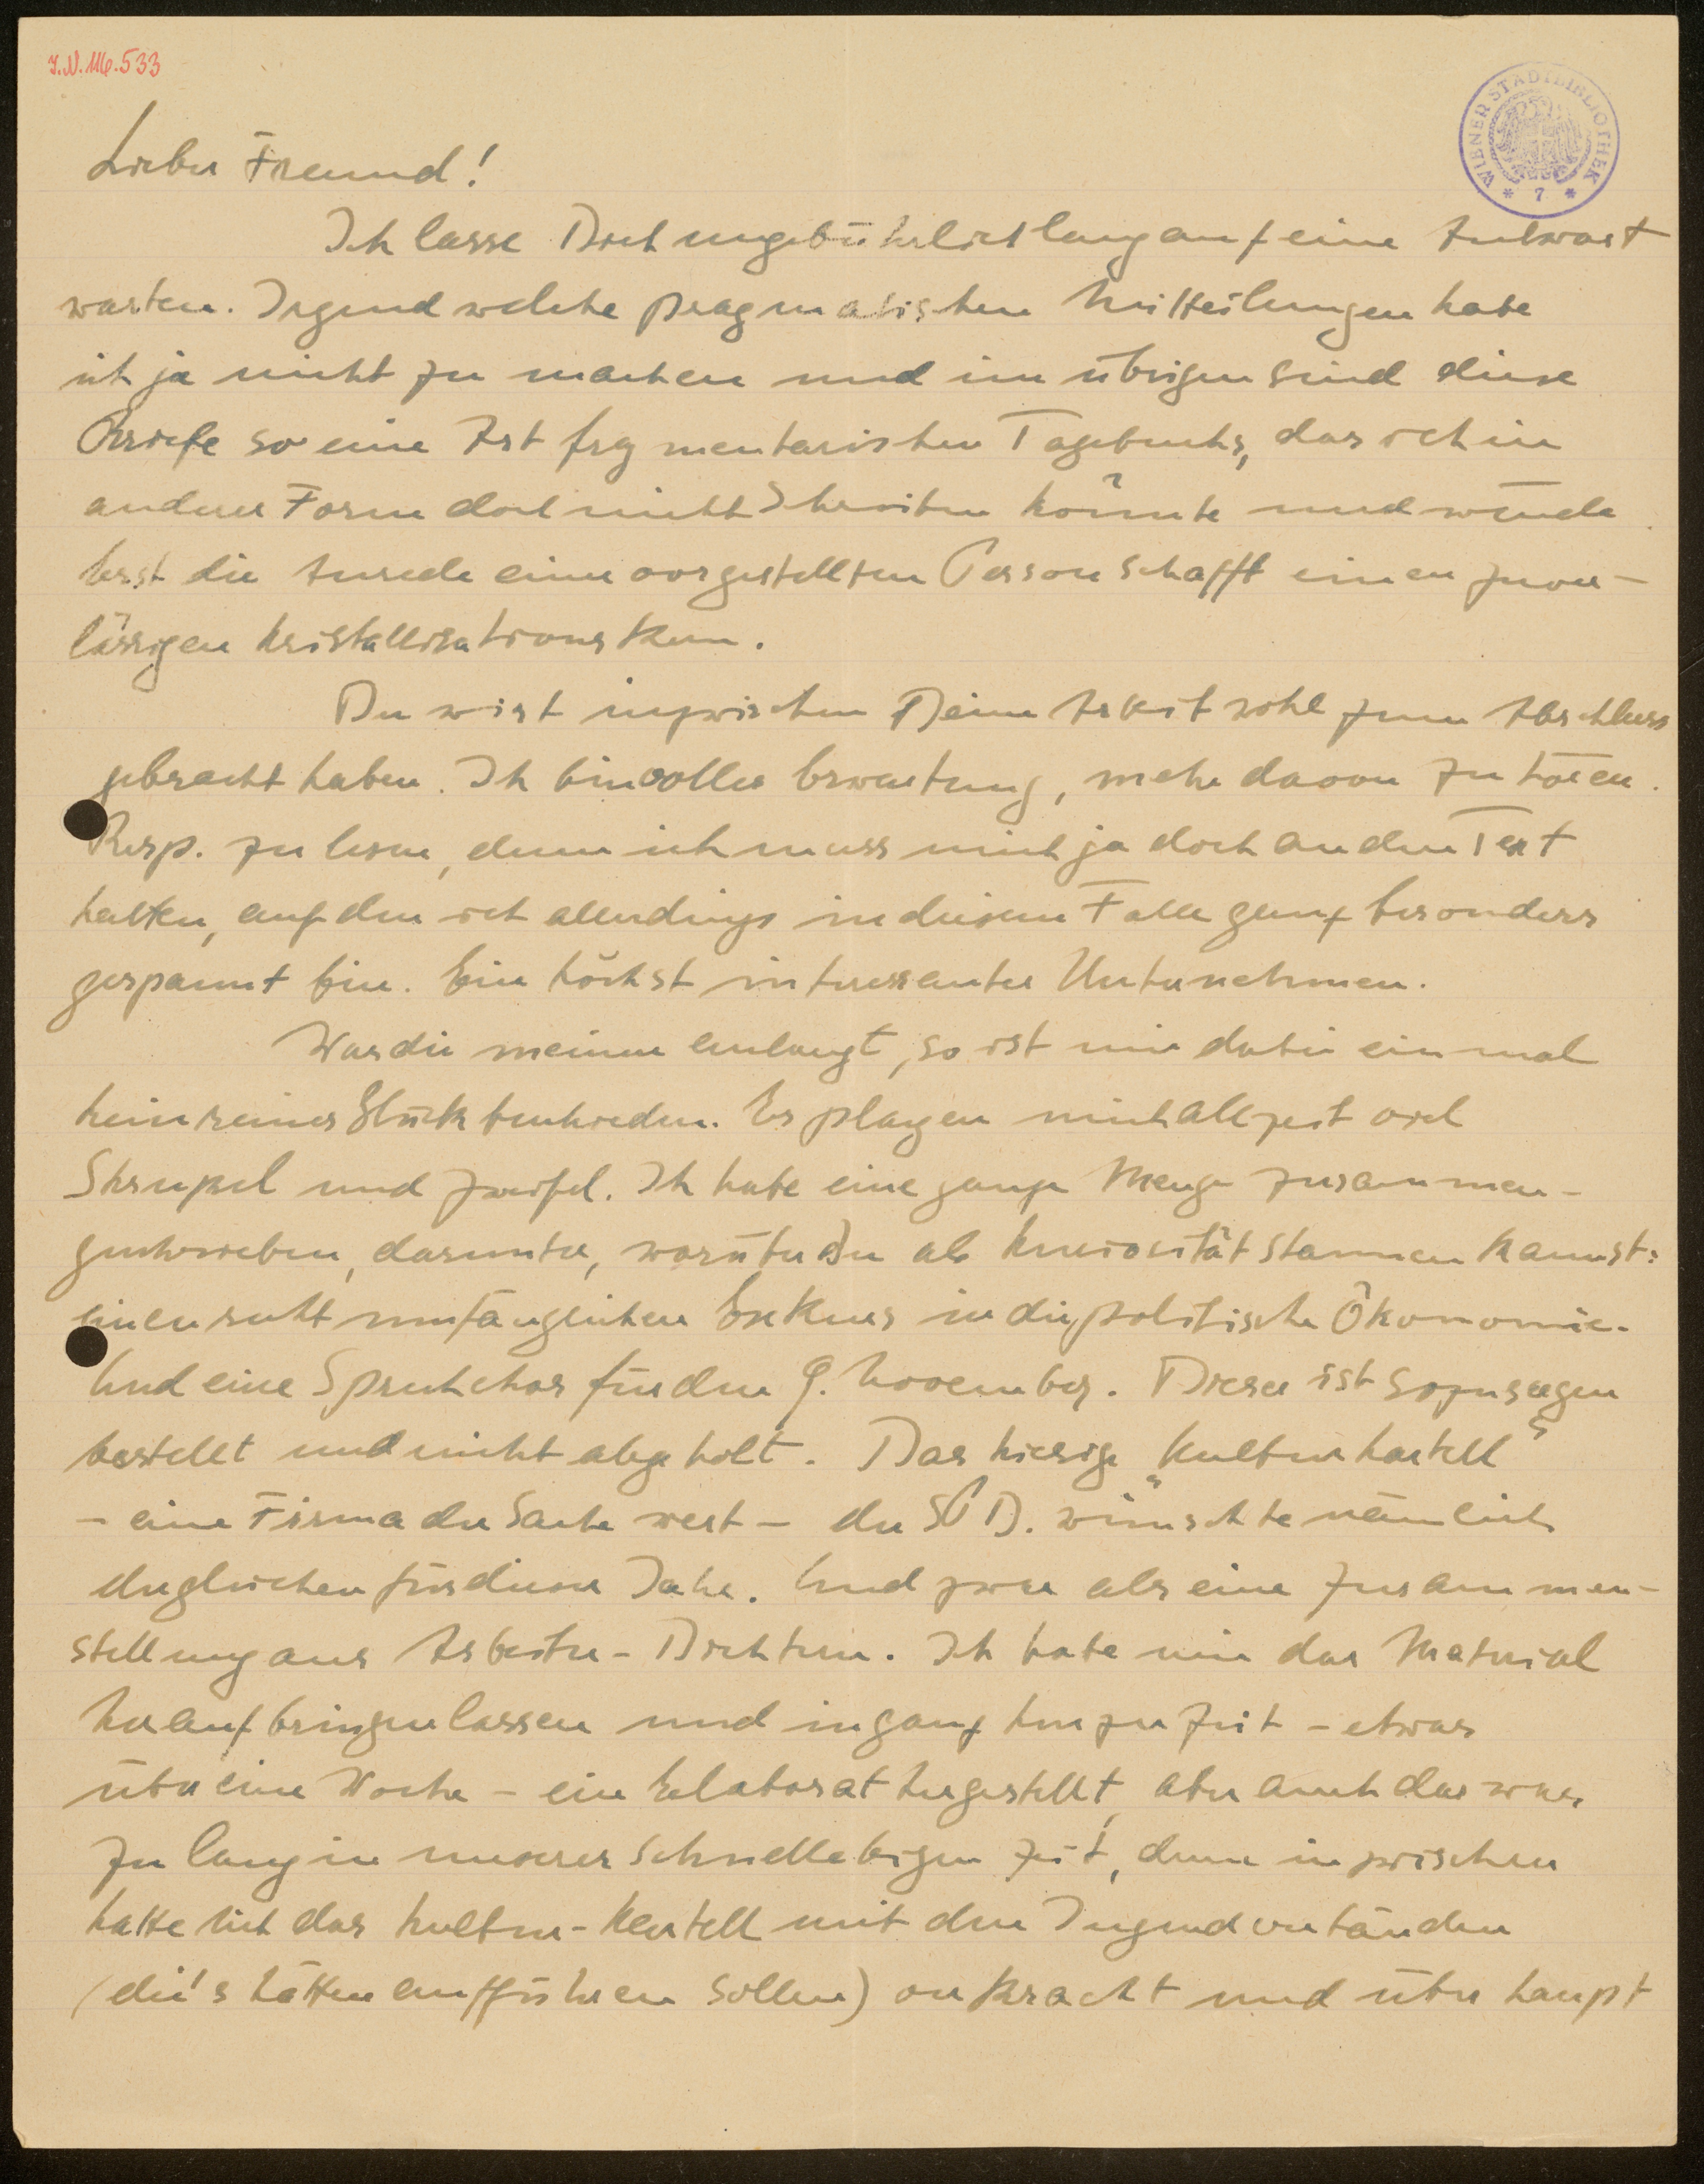 I.N. 116.533
WIENER STADTBIBLIOTHEK
* 7 *
Lieber Freund!
Ich lasse Dich ungebührlich lang auf eine Antwort
warten. Irgend welche pragmatischen Mitteilungen habe
ich ja nicht zu machen und im übrigen sind diese
Briefe so eine Art fragmentarischen Tagebuchs, das ich in
anderer Form doch nicht schreiben könnte und würde.
Erst die Anrede einer vorgestellten Person schafft einen zuver-
lässigen Kristallisationskern.
Du wirst inzwischen Deine Arbeit wohl zum Abschluss
gebracht haben. Ich bin voller Erwartung, mehr davon zu hören.
Resp. zu lesen, denn ich muss mich ja doch an den Text
halten, auf den ich allerdings in diesem Falle ganz besonders
gespannt bin. Ein höchst interessantes Unternehmen.
Was die meine anlangt, so ist mir dabei einmal
kein reines Glück beschieden. Es plagen mich allzeit viel
Skrupel und Zweifel. Ich habe eine ganze Menge zusammen-
geschrieben, darunter, worüber Du als Kuriosität staunen kannst:
einen recht umfänglichen Exkurs in die politische Ökonomie.
Und eine Sprechchor für den 9. November. Dieser ist sozusagen
bestellt und nicht abgeholt. Das hiesige „Kulturkartell“
– eine Firma der Sache wert – der SPD. wünschte nämlich
dergleichen für dieses Jahr. Und zwar als eine Zusammen-
stellung aus Arbeiter-Dichtern. Ich habe mir das Material
heraufbringen lassen und in ganz kurzer Zeit – etwas
über eine Woche – ein Elaborat hergestellt, aber auch das war
zu lang in unserer schnellebigen Zeit, denn inzwischen
hatte sich das Kultur-Kartell mit den Jugendverbänden
(die's hätten aufführen sollen) verkracht und überhaupt